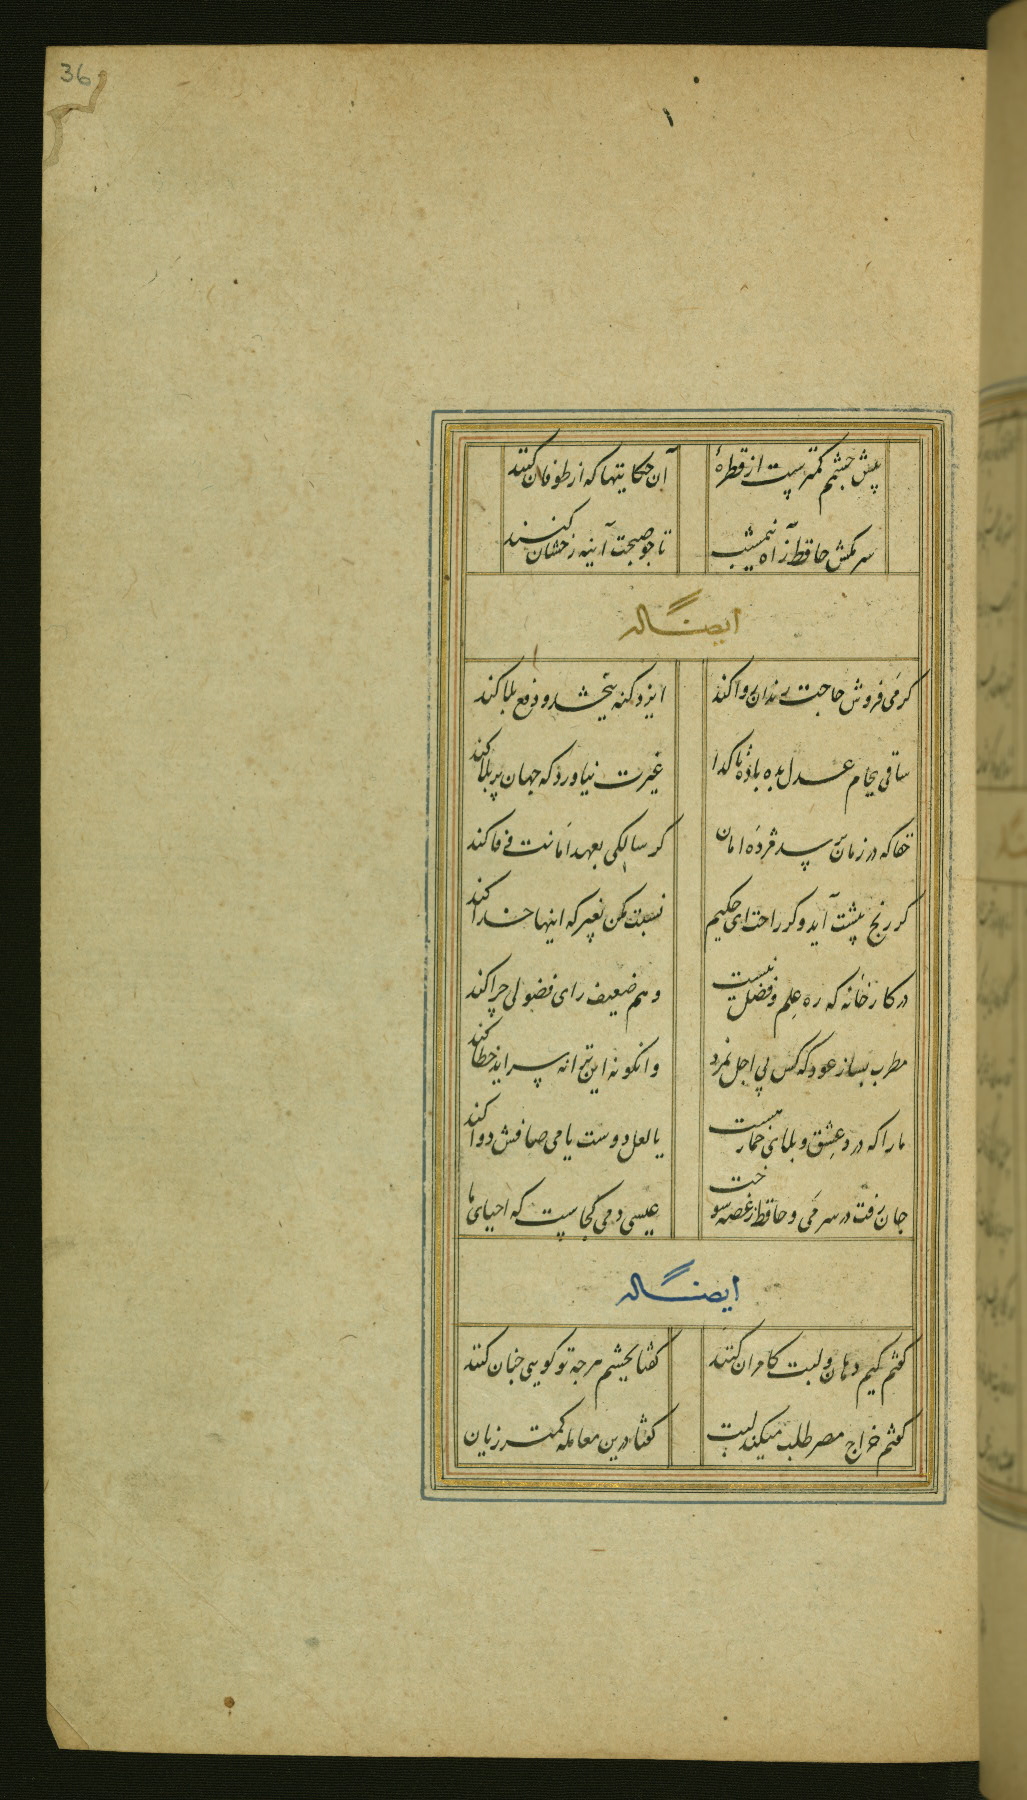 36
۱
پیش چشمم کمترست از قطرهٔ آن حکایتها که از طوفان کنند
سرمکش حافظ ز آه نیمشب تا چو صبحت آینه رخشان کنند
ایضاً له
گر می فروش حاجت رندان روا کند ایزد گنه ببخشد و دفع بلا کند
ساقی بجام عدل بده باده تا گدا غیرت نیاورد که جهان پر بلا کند
حقا که در زمان برسد مژده امان گر سالکی بعهد امانت وفا کند
گر رنج پیشت آید و گر راحت ای حکیم نسبت مکن بغیر که اینها خدا کند
در کارخانه که ره علم و فضل نیست وهم ضعیف رای فضولی چرا کند
مطرب بساز عود که کس بی اجل نمرد وانکو نه این ترانه سراید خطا کند
ما را که درد عشق و بلای خمار هست یا لعل دوست یا می صافش دوا کند
جان رفت در سر می و حافظ ز غصه سوخت عیسی دمی کجاست که احیای ما
ایضاً له
گفتم کیم دهان و لبت کامران کنند گفتا بچشم هرچه تو گویی چنان کنند
گفتم خراج مصر طلب میکند لبت گفتا درین معامله کمتر زیان